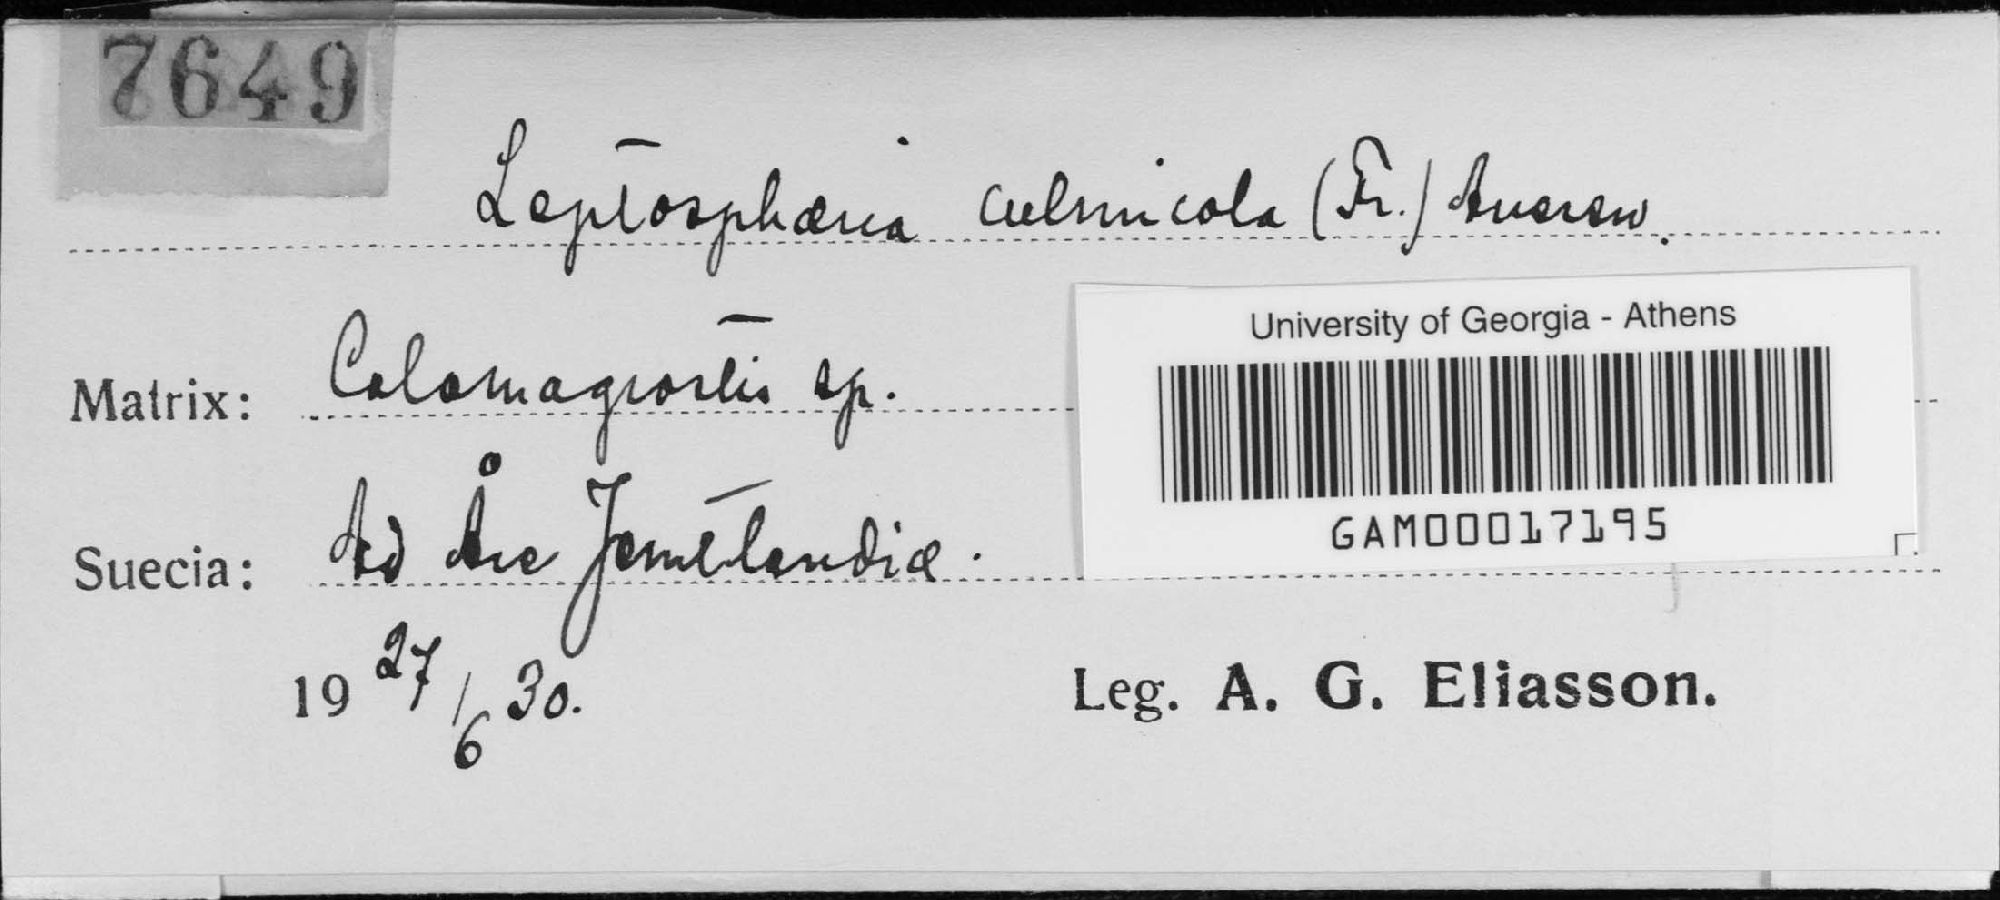 7649
Leptosphæria culmicola (Fr.) Auersw.
University of Georgia - Athens
Matrix: Calamagrostis sp.
GAM00017195
Suecia: Ad Åre Jemtlandiæ.
19 27/6 30.
Leg. A. G. Eliasson.